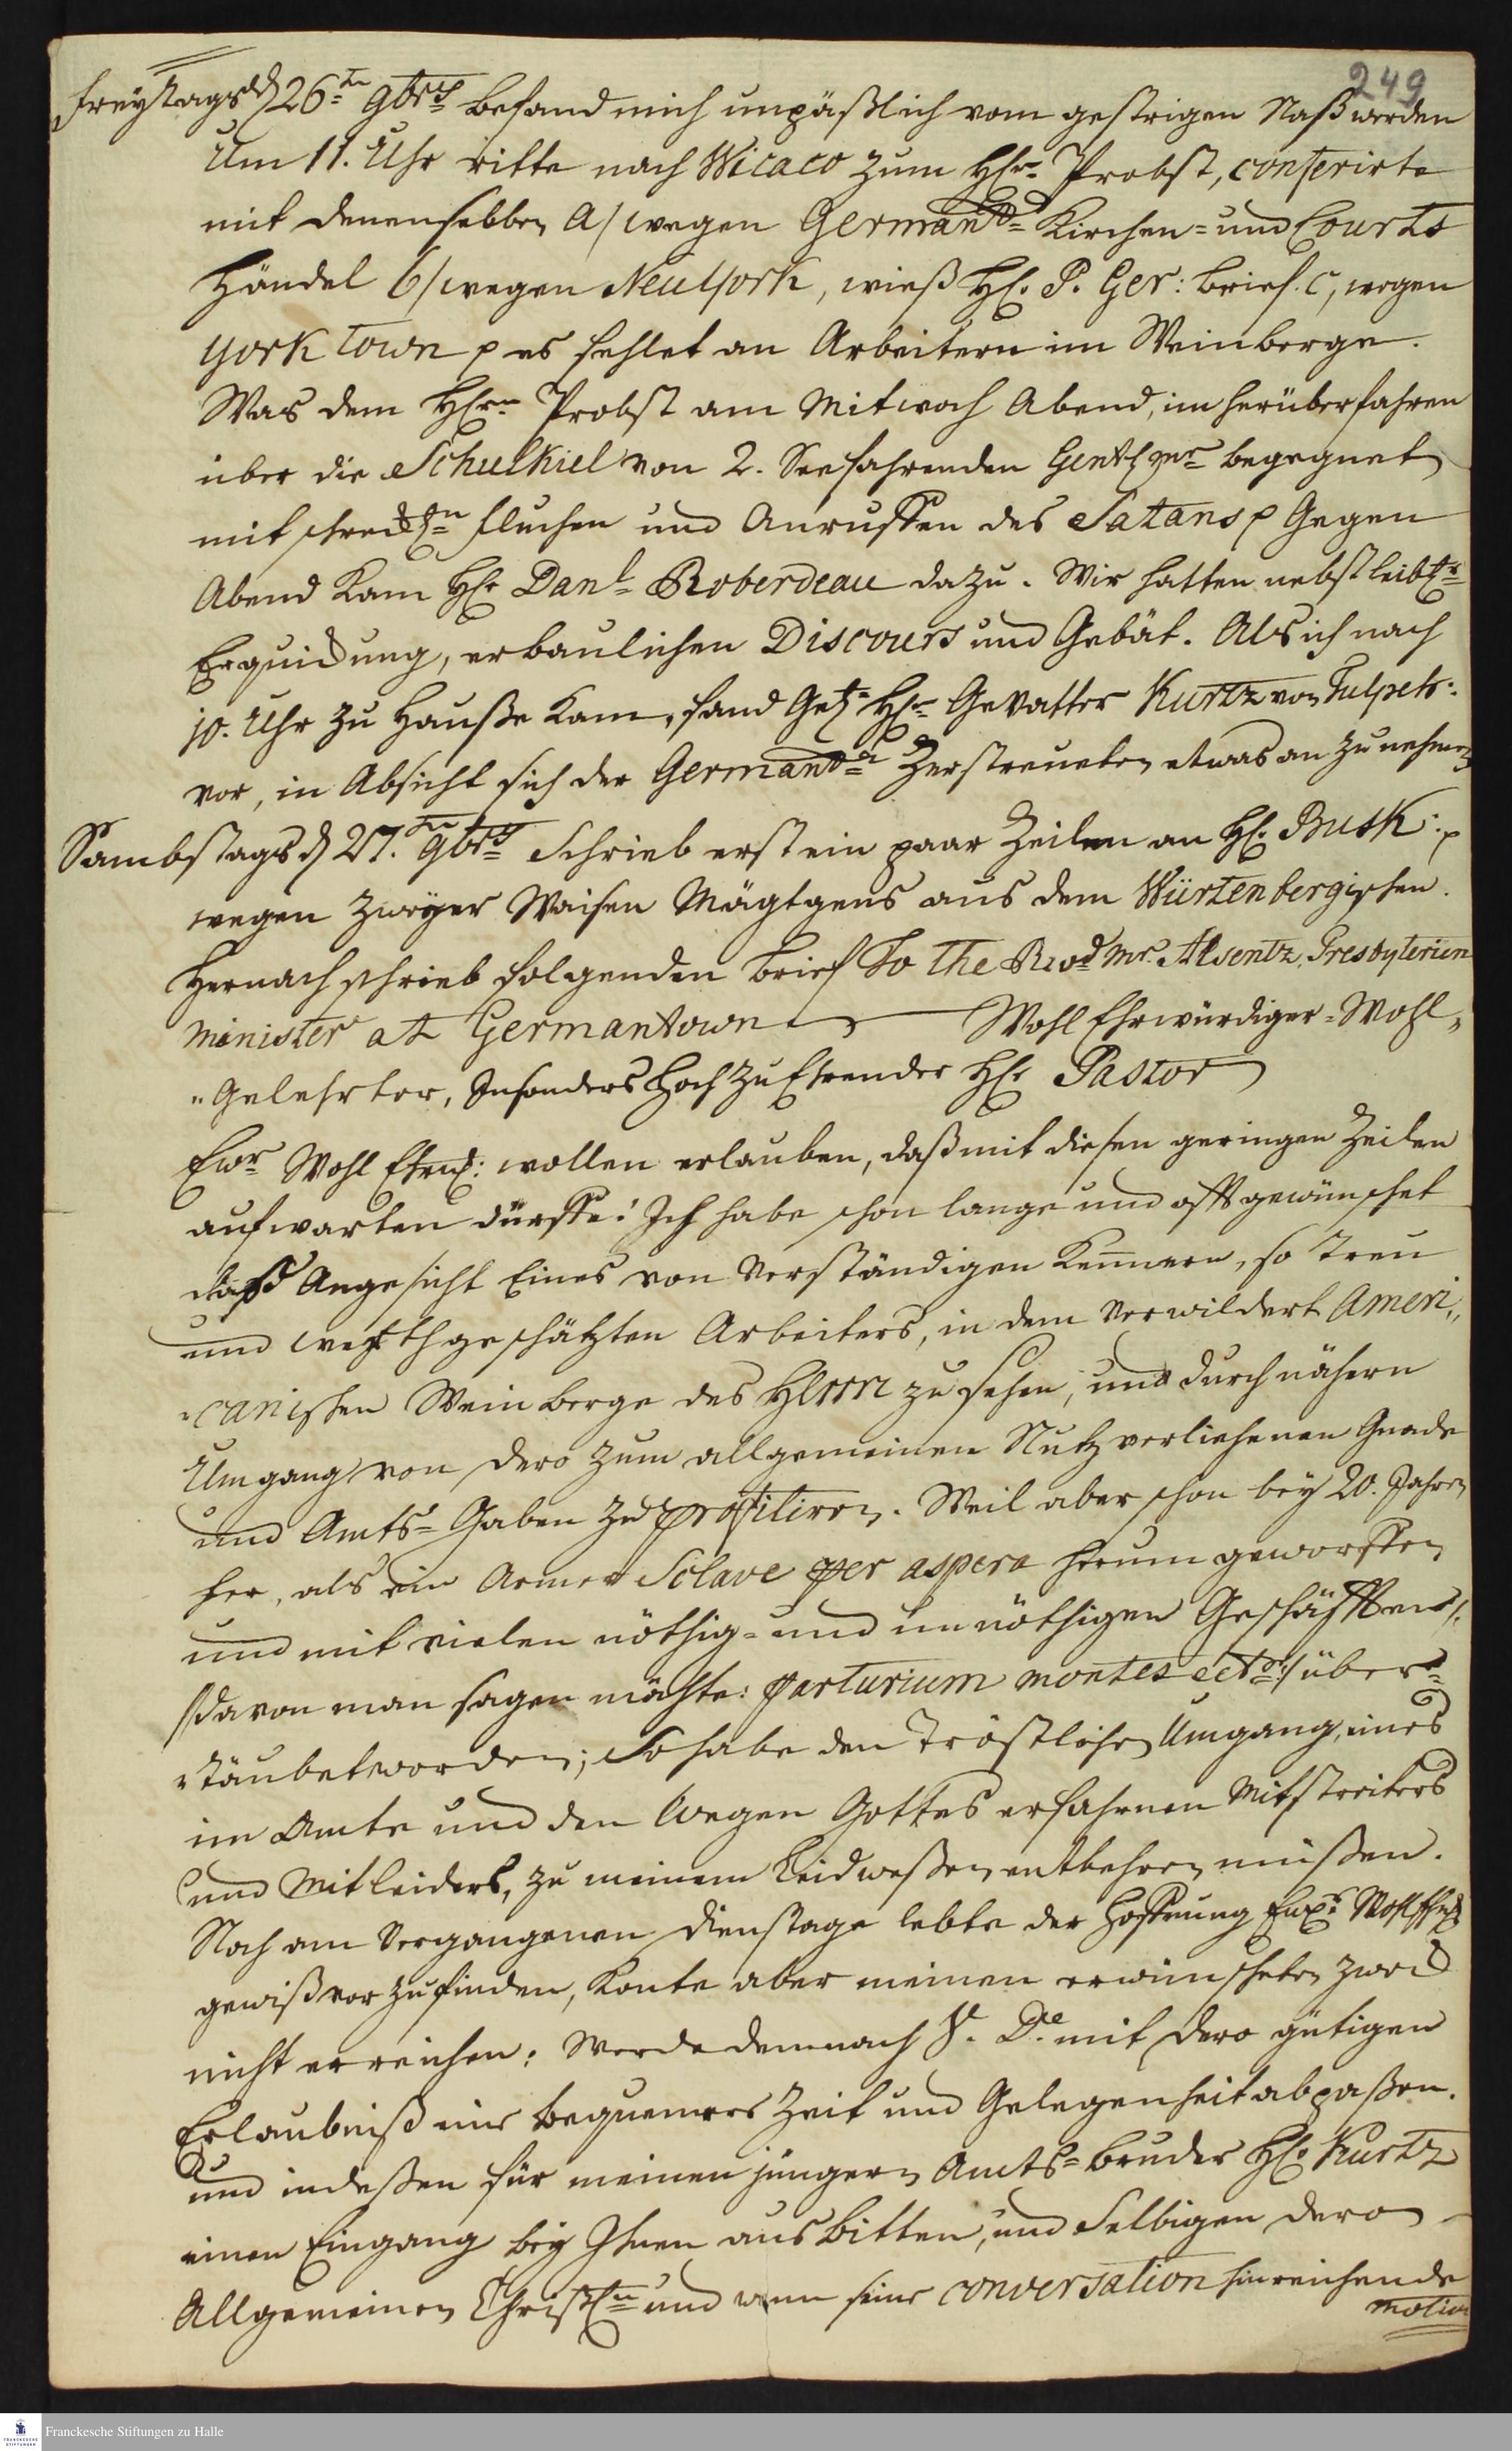 249
Freytags d 26ten 9brs befand mich unpäßlich vom gestrigen Naß werden
Um 11. Uhr ritte nach Wicaco zum HErn Probst, conferirte
mit denenselben a/ wegen Germant. Kirchen- und Courts
Händel b/ wegen Neu York, wieß HE. P. Ger: brief. c, wegen
York town p es fehlet an Arbeitern im Weinberge.
Was dem HErrn Probst am Mitwoch Abend, im herüberfahren
über die Schulkiel von 2. Seefahrenden Gentlmr begegnet
mit schreckln fluchen und Anruffen des Satans p Gegen
Abend kam HE Danl Roberdeau dazu. Wir hatten nebst leibl.
Erquickung, erbaulichen Discours und Gebät. Als ich nach
10. Uhr zu Hauße kam, fand HEn Gevatter Kurtz von Tulpeh:
vor, in Absicht sich der Germant. Zerstreueten etwas an zu nehmen
Sambstags d 27.ten 9brs Schrieb erst ein paar Zeilen an HE. Busk: p
wegen zweyer Waisen Mägtgens aus dem Würtenbergischen.
Hernach schrieb folgenden brief To the Revd Mr. Alsentz, Presbyterien
minister at Germantown Wohl Ehrwürdiger-Wohl,,
„Gelehrter, Insonders Hoch zu Ehrender HE Pastor
Ewr Wohl Ehrw: wollen erlauben, daß mit diesen geringen Zeilen
aufwarten dürffe! Ich habe schon lange und offt gewünschet
daß Angesicht Eines von Verständigen Kennern, so treu
und werthgeschätzten Arbeiters, in dem verwildert Ameri,,
„canischen Weinberge des HErrn zu sehen, und durch nähern
Umgang von dero zum allgemeinen Nutz verliehenen Gnade
und Amts-Gaben zu profitiren. Weil aber schon bey 20. Jahren
her, als ein armer Sclave per aspera herum geworffen
und mit vielen nöthig- und unnöthigen Geschäfften /:
/ davon man sagen möchte: parturium montes ectr:/ über-
„täubet worden; So habe den tröstlichen Umgang, eines
im Amte und den Wegen Gottes erfahrnen Mitstreiters
und Mitleiders, zu meinem Leidweßen entbehren müßen.
Noch am Vergangenen dienstage lebte der Hoffnung Ewr. Wohl Ehrw
gewiß vor zu finden, konte aber meinen erwünschten Zweck
nicht erreichen: Werde demnach V. D.e mit dero gütigen
Erlaubniß eine bequemere Zeit und Gelegenheit abpaßen.
und indeßen für meinen jüngern Amts-bruder HE. Kurtz
einen Eingang bey Ihnen ausbitten, und Selbigen dero
Allgemeinen Christln und wenn seine conversation hinreichende
motive
Franckesche Stiftungen zu Halle